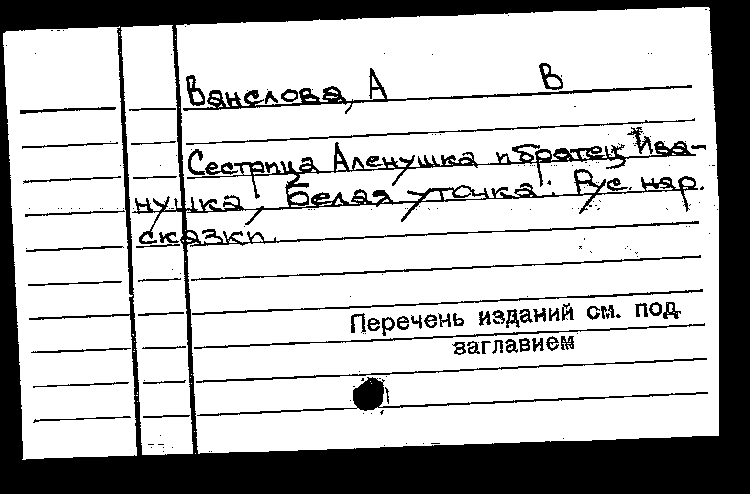 Ванслова, А В
Сестрица Аленушка и братец Ива-
нушка; Белая уточка: Рус. нар.
сказки.
Перечень изданий см. под
заглавием